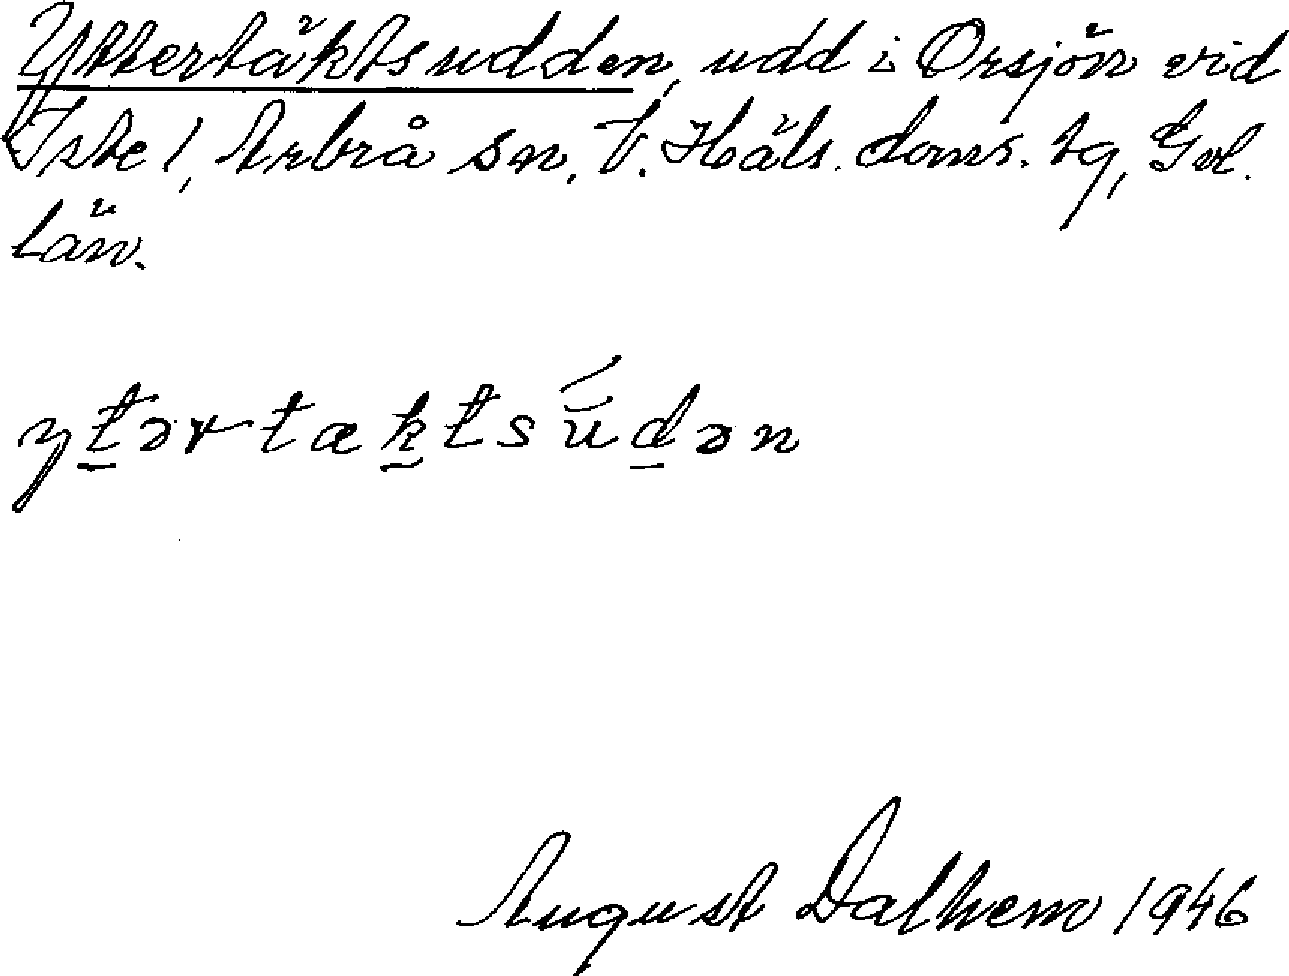 Yttertäktsudden, udd i Orsjön vid
Iste 1, Arbrå sn, V. Häls. doms. tg, Gvl.
län.
yt̠ərtæk̠tsúd̠ən
August Dalhem 1946